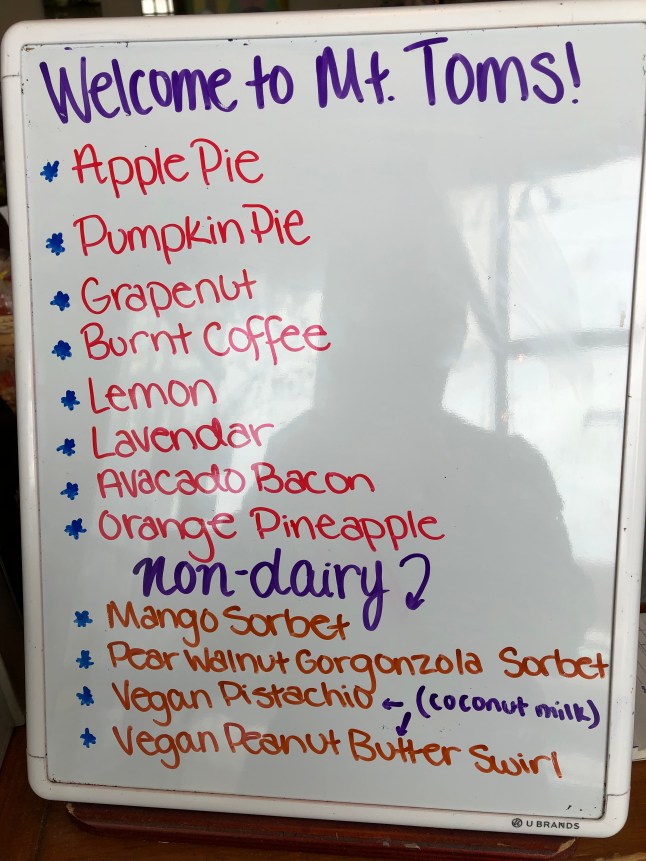 Welcome to Mt. Toms!
* Apple Pie
* Pumpkin Pie
* Grapenut
* Burnt Coffee
* Lemon
* Lavendar
* Avacado Bacon
* Orange Pineapple
non-dairy
* Mango Sorbet
* Pear Walnut Gorgonzola Sorbet
* Vegan Pistachio ← (coconut milk)
* Vegan Peanut Butter Swirl
U BRANDS